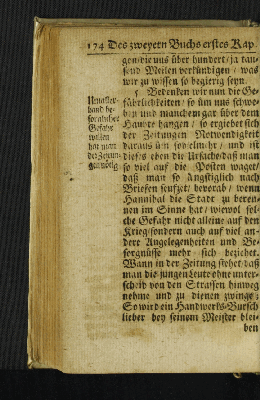 174 Des zweyten Buchs erstes Kap.
gen die uns über hundert / ja tau-
send Meilen verkündigen / was
wir zu wissen so begierig seyn.
5 Bedenken wir nun die Ge-
fährlichkeiten / so üm uns schwe-
ben und manchem gar über dem
Haupte hangen / so ergiebet sich
der Zeitungen Notwendigkeit
daraus üm so vielmehr / und ist
dieses eben die Ursache / daß man
so viel auf die Posten waget /
daß man so ängstiglich nach
Briefen seufzet / bevorab / wenn
Hannibal die Stadt zu beren-
nen im Sinne hat / wiewol sol-
che Gefahr nicht alleine auf den
Krieg / sondern auch auf viel an-
dere Angelegenheiten und Be-
sorgnüsse mehr sich beziehet.
Wann in der Zeitung stehet / daß
man die jungen Leute ohne unter-
scheid von den Strassen hinweg
nehme und zu dienen zwinge;
So wird ein Handwerks-Bursch
lieber bey seinem Meister blei-
ben
hand be-
Gefahr
willen
hat man
der Zeitun-
gen nötig.